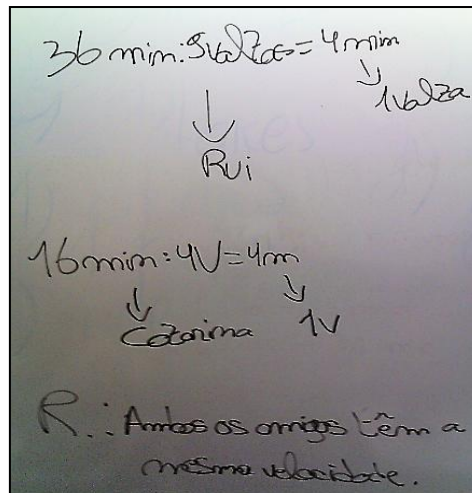 36 min:9valzas=4 min
1valza
Rui
16 min:4V=4m
Catarina 1V
R.: Ambos os amigos têm a
mesma velocidade.